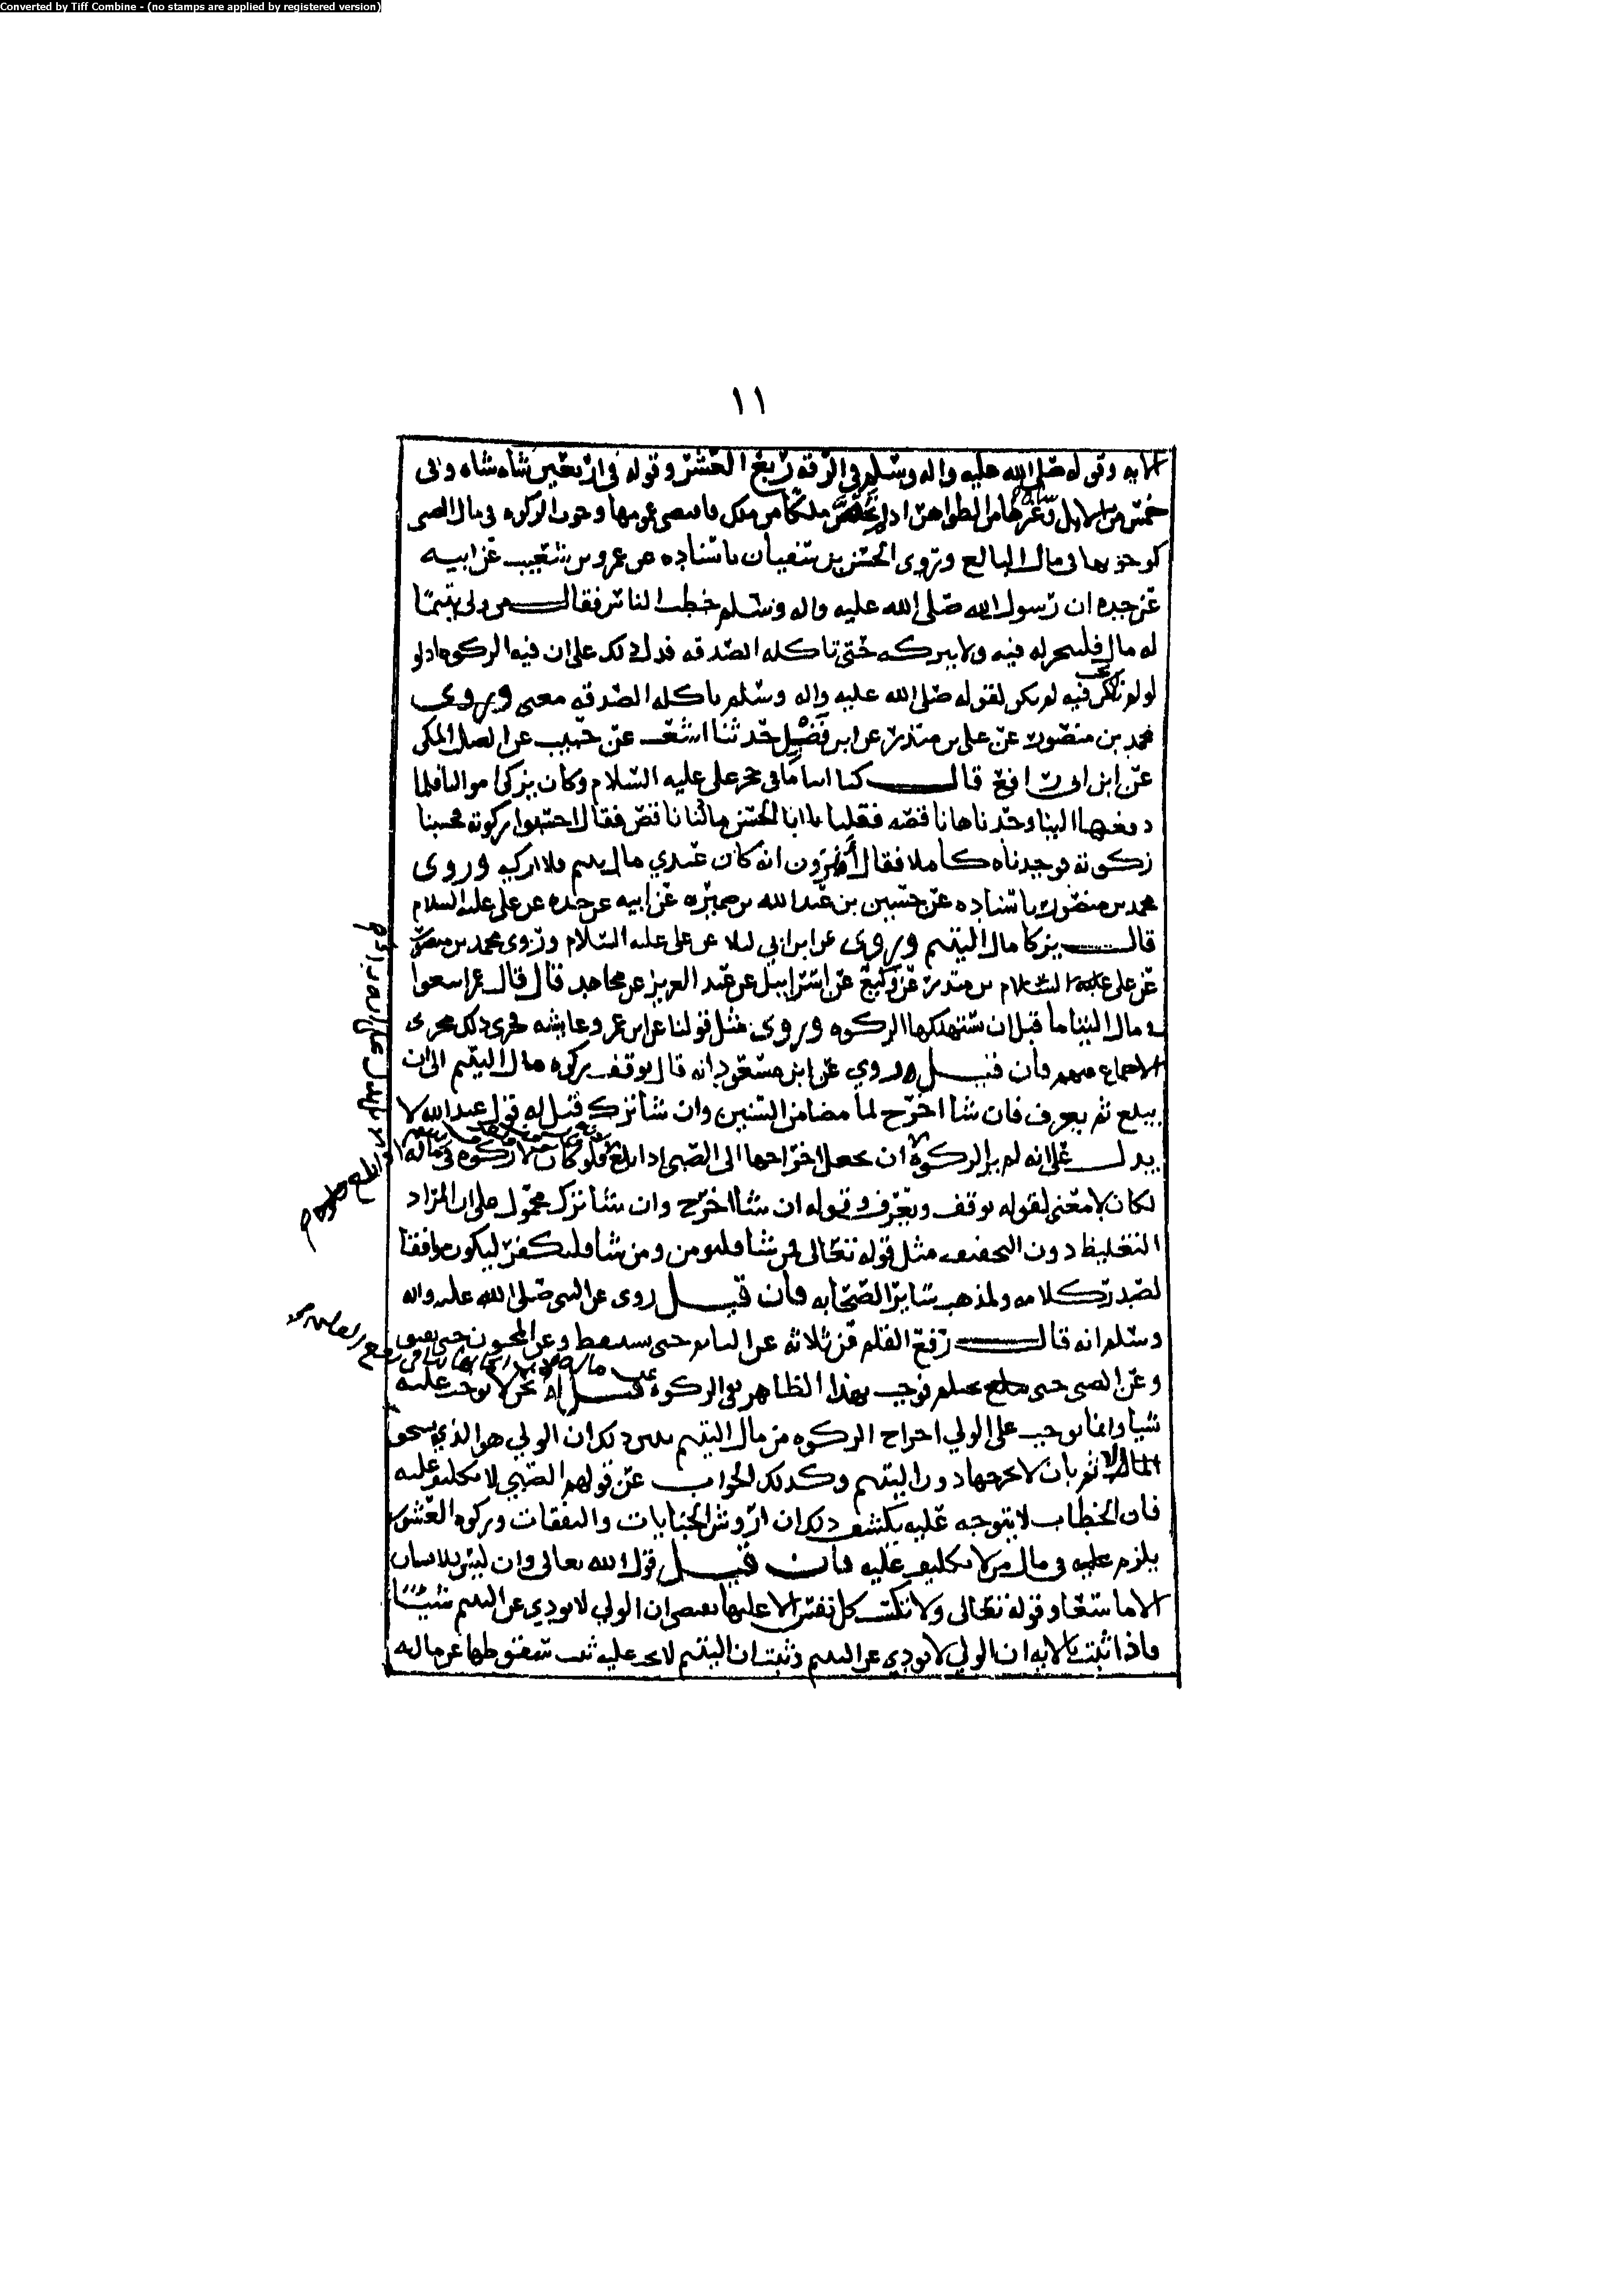 Converted by Tiff Combine - (no stamps are applied by registered version)
١١
الايه وقوله صلى الله عليه واله وسلم في الرقه ربع العشر وقوله في اربعين شاه شاه وفي
خمس من الابل شاه وغيرها من الظواهر اذ لم يخص ملكا من ملك فاقتضى عمومها وجوب الزكوه في مال الصبي
كوجوبها في مال البالغ وروى الحسن بن سفيان باسناده عن عمرو بن شعيب عن ابيه
عن جده ان رسول الله صلى الله عليه واله وسلم خطب الناس فقال من ولي يتيما
له مال فليتجر له فيه ولا يتركه حتى تاكله الصدقه فدل ذلك على ان فيه الزكوه اذ لو
لو لم تجب فيه لم يكن لقوله صلى الله عليه واله وسلم تاكله الصدقه معنى وروى
محمد بن منصور عن علي بن منذر عن ابن فضيل حدثنا اشعث عن حبيب عن الصلت المكي
عن ابن ابي رافع قال كنا ايتاما في حجر علي عليه السلام وكان يزكي اموالنا فلما
دفعها الينا وجدناها ناقصه فقلنا يا ابا الحسن مالنا ناقص فقال احسبوا زكوته فحسبنا
زكوته فوجدناه كاملا فقال أفترون انه كان عندي مال يتيم فلا ازكيه وروى
محمد بن منصور باسناده عن حسين بن عبد الله بن ضميره عن ابيه عن جده عن علي عليه السلام
قال يزكا مال اليتيم وروى عن ابن ابي ليلا عن علي عليه السلام وروى محمد بن منصور
عن علي بن منذر عن وكيع عن اسراييل عن عبد العزيز عن مجاهد قال قال عمر اسعوا
في مال اليتاما قبل ان تستهلكها الزكوه وروى مثل قولنا عن ابن عمر وعايشه فجرى ذلك مجرى
الاجماع منهم فان قيل روي عن ابن مسعود انه قال يوقف زكوه مال اليتيم الى ان
يبلغ ثم يعرف فان شا اخرج لما مضا من السنين وان شا ترك قيل له قول عبد الله لا
يدل على انه لم ير الزكوه لان جعل اخراجها الى الصبي اذا بلغ فلو كان لا زكوه في ماله
لكان لا معنى لقوله يوقف ويعرف وقوله ان شا اخرج وان شا ترك محمول على ان المراد
التغليظ دون التخفيف مثل قوله تعالى فمن شا فليومن ومن شا فليكفر ليكون موافقا
لصدر كلامه ولمذهب ساير الصحابه فان قيل روى عن النبي صلى الله عليه واله
وسلم انه قال رفع القلم عن ثلاثه عن النايم حتى يستيقظ وعن المجنون حتى يفيق
وعن الصبي حتى يحتلم فوجب بهذا الظاهر نفي الزكوه عن ماله قيل له نحن لا نوجب عليه
شيا وانما نوجب على الولي اخراج الزكوه من مال اليتيم يبين ذلك ان الولي هو الذي يستحق
الاثم بان لا يخرجها دون اليتيم وكذلك الجواب عن قولهم الصبي لا تكليف عليه
فان الخطاب لا يتوجه عليه يكشف ذلك ان اروش الجنايات والنفقات وزكوه العشور
يلزم في مال من لا تكليف عليه فان قيل قول الله تعالى وان ليس للانسان
الا ما سعا وقوله تعالى ولا تكسب كل نفس الا عليها يقتضي ان الولي لا يودي عن اليتيم شيئا
فاذا ثبت بالايه ان الولي لا يودي عن اليتيم وثبت ان اليتيم لا يجب عليه ثبت سقوطها عن ماله